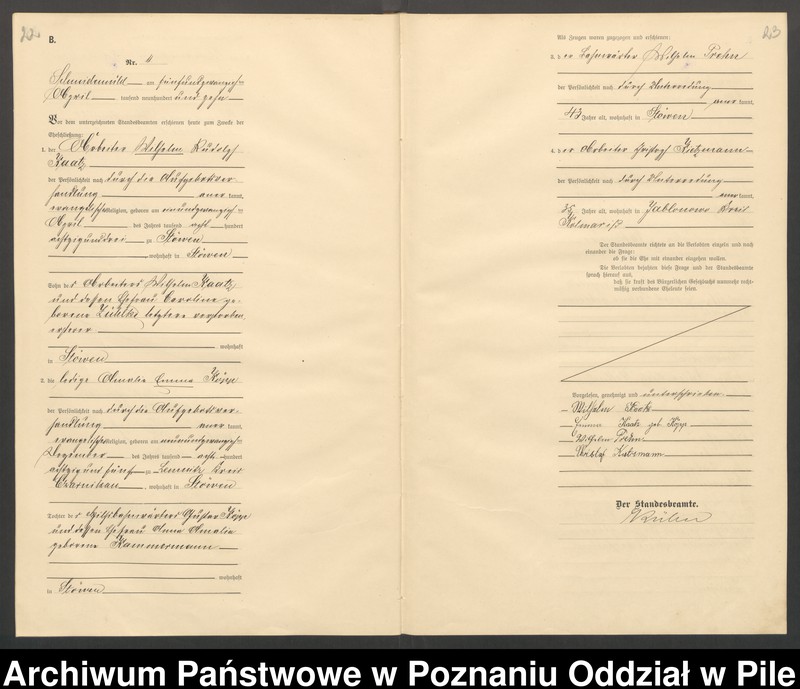 22
B.
Nr. 4
Schneidemühl am fünfundzwanzig=
April tausend neunhundert und zehn
Vor dem unterzeichneten Standesbeamten erschienen heute zum Zwecke der
Eheschließung:
1. der Arbeiter Wilhelm Rudolf
Kaatz
der Persönlichkeit nach durch die Aufgebotsver-
handlung anerkannt,
evangelischer Religion, geboren am
April des Jahres tausend acht hundert
achtzig und drei zu Stöwen
, wohnhaft in Stöwen
Sohn des Arbeiters Wilhelm Kaatz
und dessen Ehefrau Caroline ge-
borene letztere verstorben,
ersterer
wohnhaft
in Stöwen
2. die ledige Amalie Emma Köpp
der Persönlichkeit nach durch die Aufgebotsver-
handlung anerkannt,
evangelischer Religion, geboren am neunundzwanzig=
Dezember des Jahres tausend acht hundert
achtzig und fünf zu Kreis
Czarnikau, wohnhaft in Stöwen
Tochter des Hilfsbahnwärters Gustav Köpp
und dessen Ehefrau Anna Amalie
geborene Kammermann
wohnhaft
in Stöwen
23
Als Zeugen waren zugezogen und erschienen:
3. der Bahnwärter Wilhelm
der Persönlichkeit nach durch Unterredung
anerkannt,
43 Jahre alt, wohnhaft in Stöwen
4. der Arbeiter
der Persönlichkeit nach durch Unterredung
anerkannt,
35 Jahre alt, wohnhaft in Jablonowo Kreis
Kolmar i/P
Der Standesbeamte richtete an die Verlobten einzeln und nach
einander die Frage:
ob sie die Ehe mit einander eingehen wollen.
Die Verlobten bejahten diese Frage und der Standesbeamte
sprach hierauf aus,
daß sie kraft des Bürgerlichen Gesetzbuchs nunmehr recht-
mäßig verbundene Eheleute seien.
Vorgelesen, genehmigt und unterschrieben
Wilhelm Kaatz
Emma Kaatz geb. Köpp
Wilhelm
Der Standesbeamte.
Archiwum Państwowe w Poznaniu Oddział w Pile